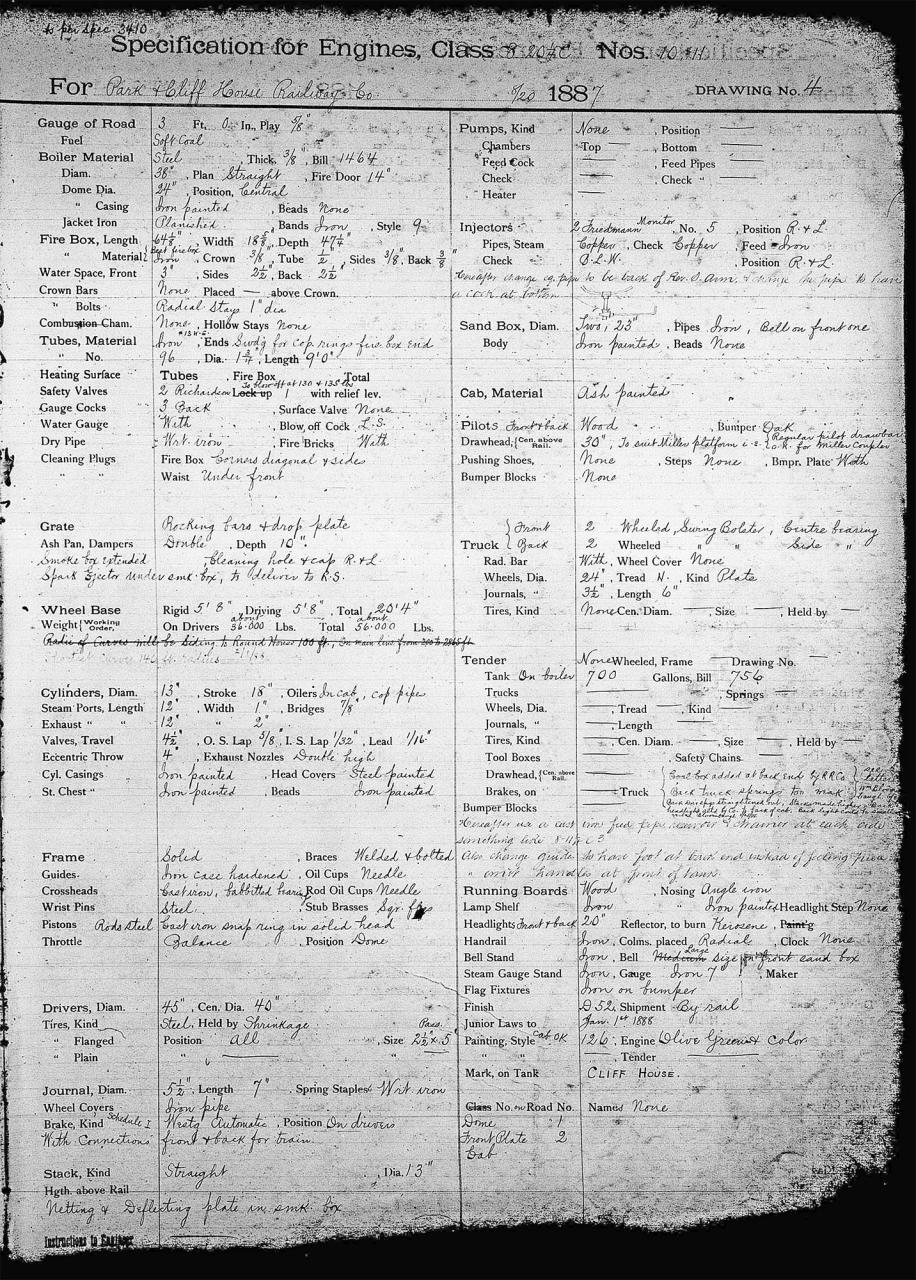 to per spec. 2410
Specification for Engines, Class 8 20¼C Nos. 10, 11
For Park & Cliff House Railway Co 5/20 1887 DRAWING No. 4
Gauge of Road 3 Ft. 0 In., Play 5/8"
Fuel Soft Coal
Boiler Material Steel, Thick. 3/8, Bill 1464
Diam. 38", Plan Straight, Fire Door 14"
Dome Dia. 24", Position, Central
" Casing Iron painted, Beads None
Jacket Iron Planished, Bands Iron, Style 9
Fire Box, Length, Width, Depth
" Material Best fire box Iron, Crown 3/8, Tube 1/2, Sides 3/8, Back 3/8
Water Space, Front 3", Sides 2½, Back 2½
Crown Bars None Placed — above Crown.
" Bolts Radial Stays 1" dia
Combustion Cham. None, Hollow Stays None
Tubes, Material Iron, Ends Swdg for cop rings fire box end
" No. 96, Dia. 1¾, Length 9'0"
Heating Surface Tubes Fire Box Total
Safety Valves 2 Richardson To blow off at 130 & 135 lbs Lock up 1 with relief lev.
Gauge Cocks 3 Back, Surface Valve None
Water Gauge With, Blow off Cock L.S.
Dry Pipe Wrt. iron, Fire Bricks With
Cleaning Plugs Fire Box Corners diagonal & sides
" " Waist Under front
Grate Rocking bars & drop plate
Ash Pan, Dampers Double, Depth 10"
Smoke box extended, Cleaning hole & cap R & L.
Spark Ejector under smk. box, to deliver to R.S.
Wheel Base Rigid 5' 8", Driving 5' 8", Total 20' 4"
Weight { Working Order, On Drivers about 36.000 Lbs. Total about 56.000 Lbs.
Radii of Curves will be Siding to Round House 100 ft., On main line from
Cylinders, Diam. 13", Stroke 18", Oilers In cab, cop pipe
Steam Ports, Length 12", Width 1", Bridges 7/8"
Exhaust " " 12" " 2"
Valves, Travel 4½", O. S. Lap 5/8", I. S. Lap 1/32", Lead 1/16"
Eccentric Throw 4", Exhaust Nozzles Double high
Cyl. Casings Iron painted, Head Covers Steel painted
St. Chest " Iron painted, Beads Iron painted
Frame Solid, Braces Welded & bolted
Guides Iron case hardened, Oil Cups Needle
Crossheads Cast iron, babbitted bearing, Rod Oil Cups Needle
Wrist Pins Steel, Stub Brasses Sqr.
Pistons Rods steel Cast iron snap ring in solid head
Throttle Balance, Position Dome
Drivers, Diam. 45", Cen. Dia. 40"
Tires, Kind Steel, Held by Shrinkage
" Flanged Position All Size 2½ x 5"
" Plain " "
Journal, Diam. 5½", Length 7" Spring Staples Wrt iron
Wheel Covers Iron pipe
Brake, Kind Schedule I Westg Automatic, Position On drivers
With Connections front & back for train
Stack, Kind Straight, Dia. 13"
Hgth. above Rail
Netting & Deflecting plate in smk. box
Instructions to Engineer
Pumps, Kind None, Position —
Chambers Top —, Bottom —
Feed Cock —, Feed Pipes —
Check —, Check " —
Heater —
Injectors 2 Friedmann Monitor No. 5, Position R & L
Pipes, Steam Copper, Check Copper, Feed Iron
Check B.L.W., Position R. & L.
Hereafter change eq. pipe to be back of Rev. S. Arm, & change the pipe to have
a cock at bottom
Sand Box, Diam. Two, 23", Pipes Iron, Bell on front one
Body Iron painted, Beads None
Cab, Material Ash painted
Pilots Front & back Wood, Bumper Oak
Drawhead, { Cen. above Rail. 30", To suit Miller platform i.e. { Regular pilot drawbar O.K. for Miller Coupler
Pushing Shoes, None, Steps None, Bmpr. Plate With
Bumper Blocks None
Truck { Front 2 Wheeled, Swing Bolster, Centre bearing
Back 2 Wheeled " " Side "
Rad. Bar With, Wheel Cover None
Wheels, Dia. 24", Tread N., Kind Plate
Journals, " 3½", Length 6"
Tires, Kind None Cen. Diam. —, Size —, Held by —
Tender None Wheeled, Frame — Drawing No. —
Tank On boiler 700 Gallons, Bill 756
Trucks —, Springs —
Wheels, Dia. —, Tread —, Kind —
Journals, " —, Length —
Tires, Kind —, Cen. Diam. —, Size —, Held by —
Tool Boxes —, Safety Chains —
Drawhead, { Cen. above Rail. — Coal box added at back end by RR Co
Brakes, on — Truck Back truck springs too weak
Bumper Blocks
Hereafter use a cast iron feed pipe & strainer at each side
something like
Also change guide to have foot at back end instead of
at front of tank.
Running Boards Wood, Nosing Angle iron
Lamp Shelf Iron " Iron painted Headlight Step None
Headlights Front & back 20" Reflector, to burn Kerosene, Paint'g
Handrail Iron, Colms. placed Radial, Clock None
Bell Stand Iron, Bell Medium Large size on front sand box
Steam Gauge Stand Iron, Gauge Iron 7", Maker
Flag Fixtures Iron on bumper
Finish D 52, Shipment By rail
Junior Laws to Jan. 1st 1888
Painting, Style Cab OK 126, Engine Olive Green & Color
" " —, Tender —
Mark, on Tank CLIFF HOUSE.
Class No. on Road No. Names None
Dome 1
Front Plate 2
Cab